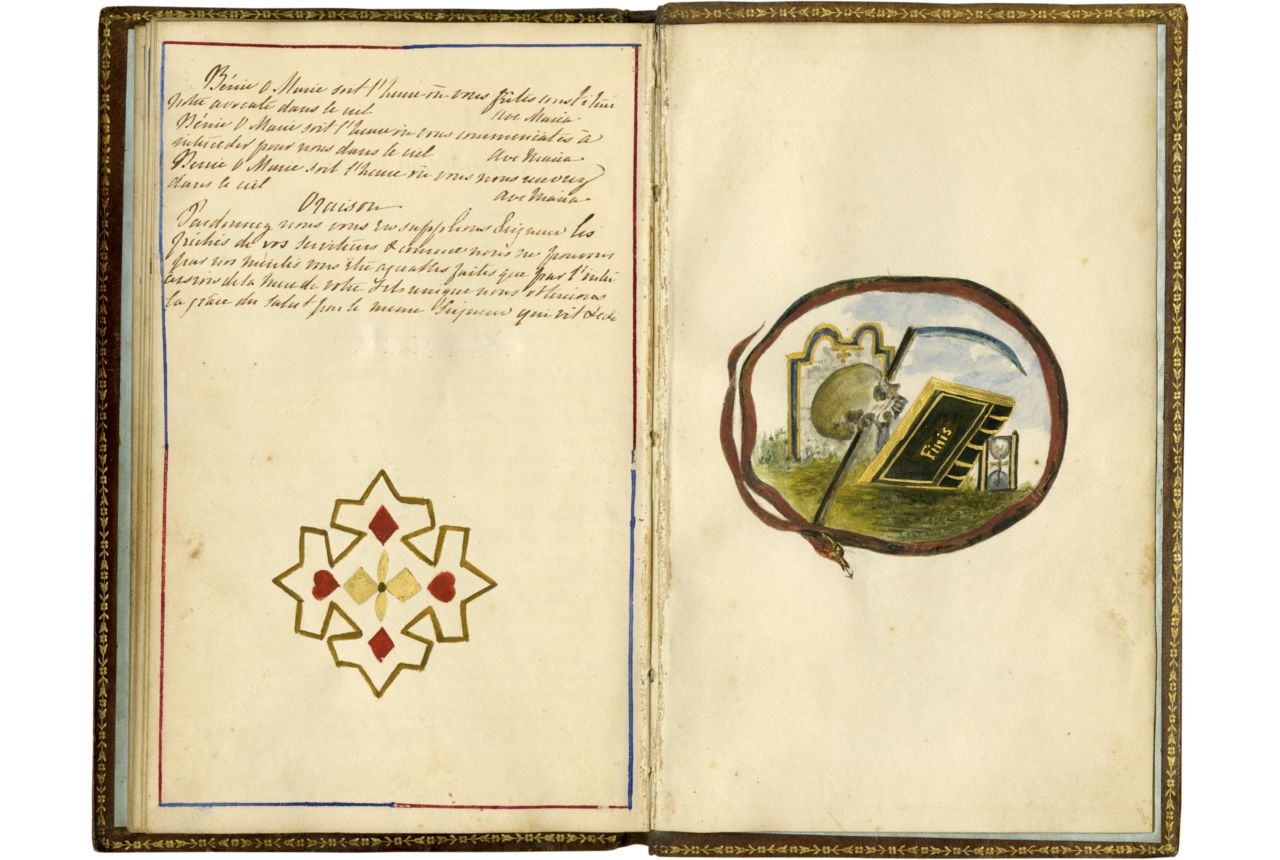 Bénie O Marie soit l'heure où vous fûtes constituée
notre avocate dans le ciel Ave Maria
Bénie O Marie soit l'heure où vous commenciates à
intercéder pour nous dans le ciel Ave Maria
Benie O Marie soit l'heure où vous nous recevrez
dans le ciel
Ave Maria
Oraison
Pardonnez nous vous en supplions Seigneur les
péchés de vos serviteurs & comme nous ne pouvons
par nos mérites vous être agréables faites que par l'inter
cession de la mere de votre fils unique nous obtenions
la grâce du salut par le meme Seigneur qui vit &
Finis